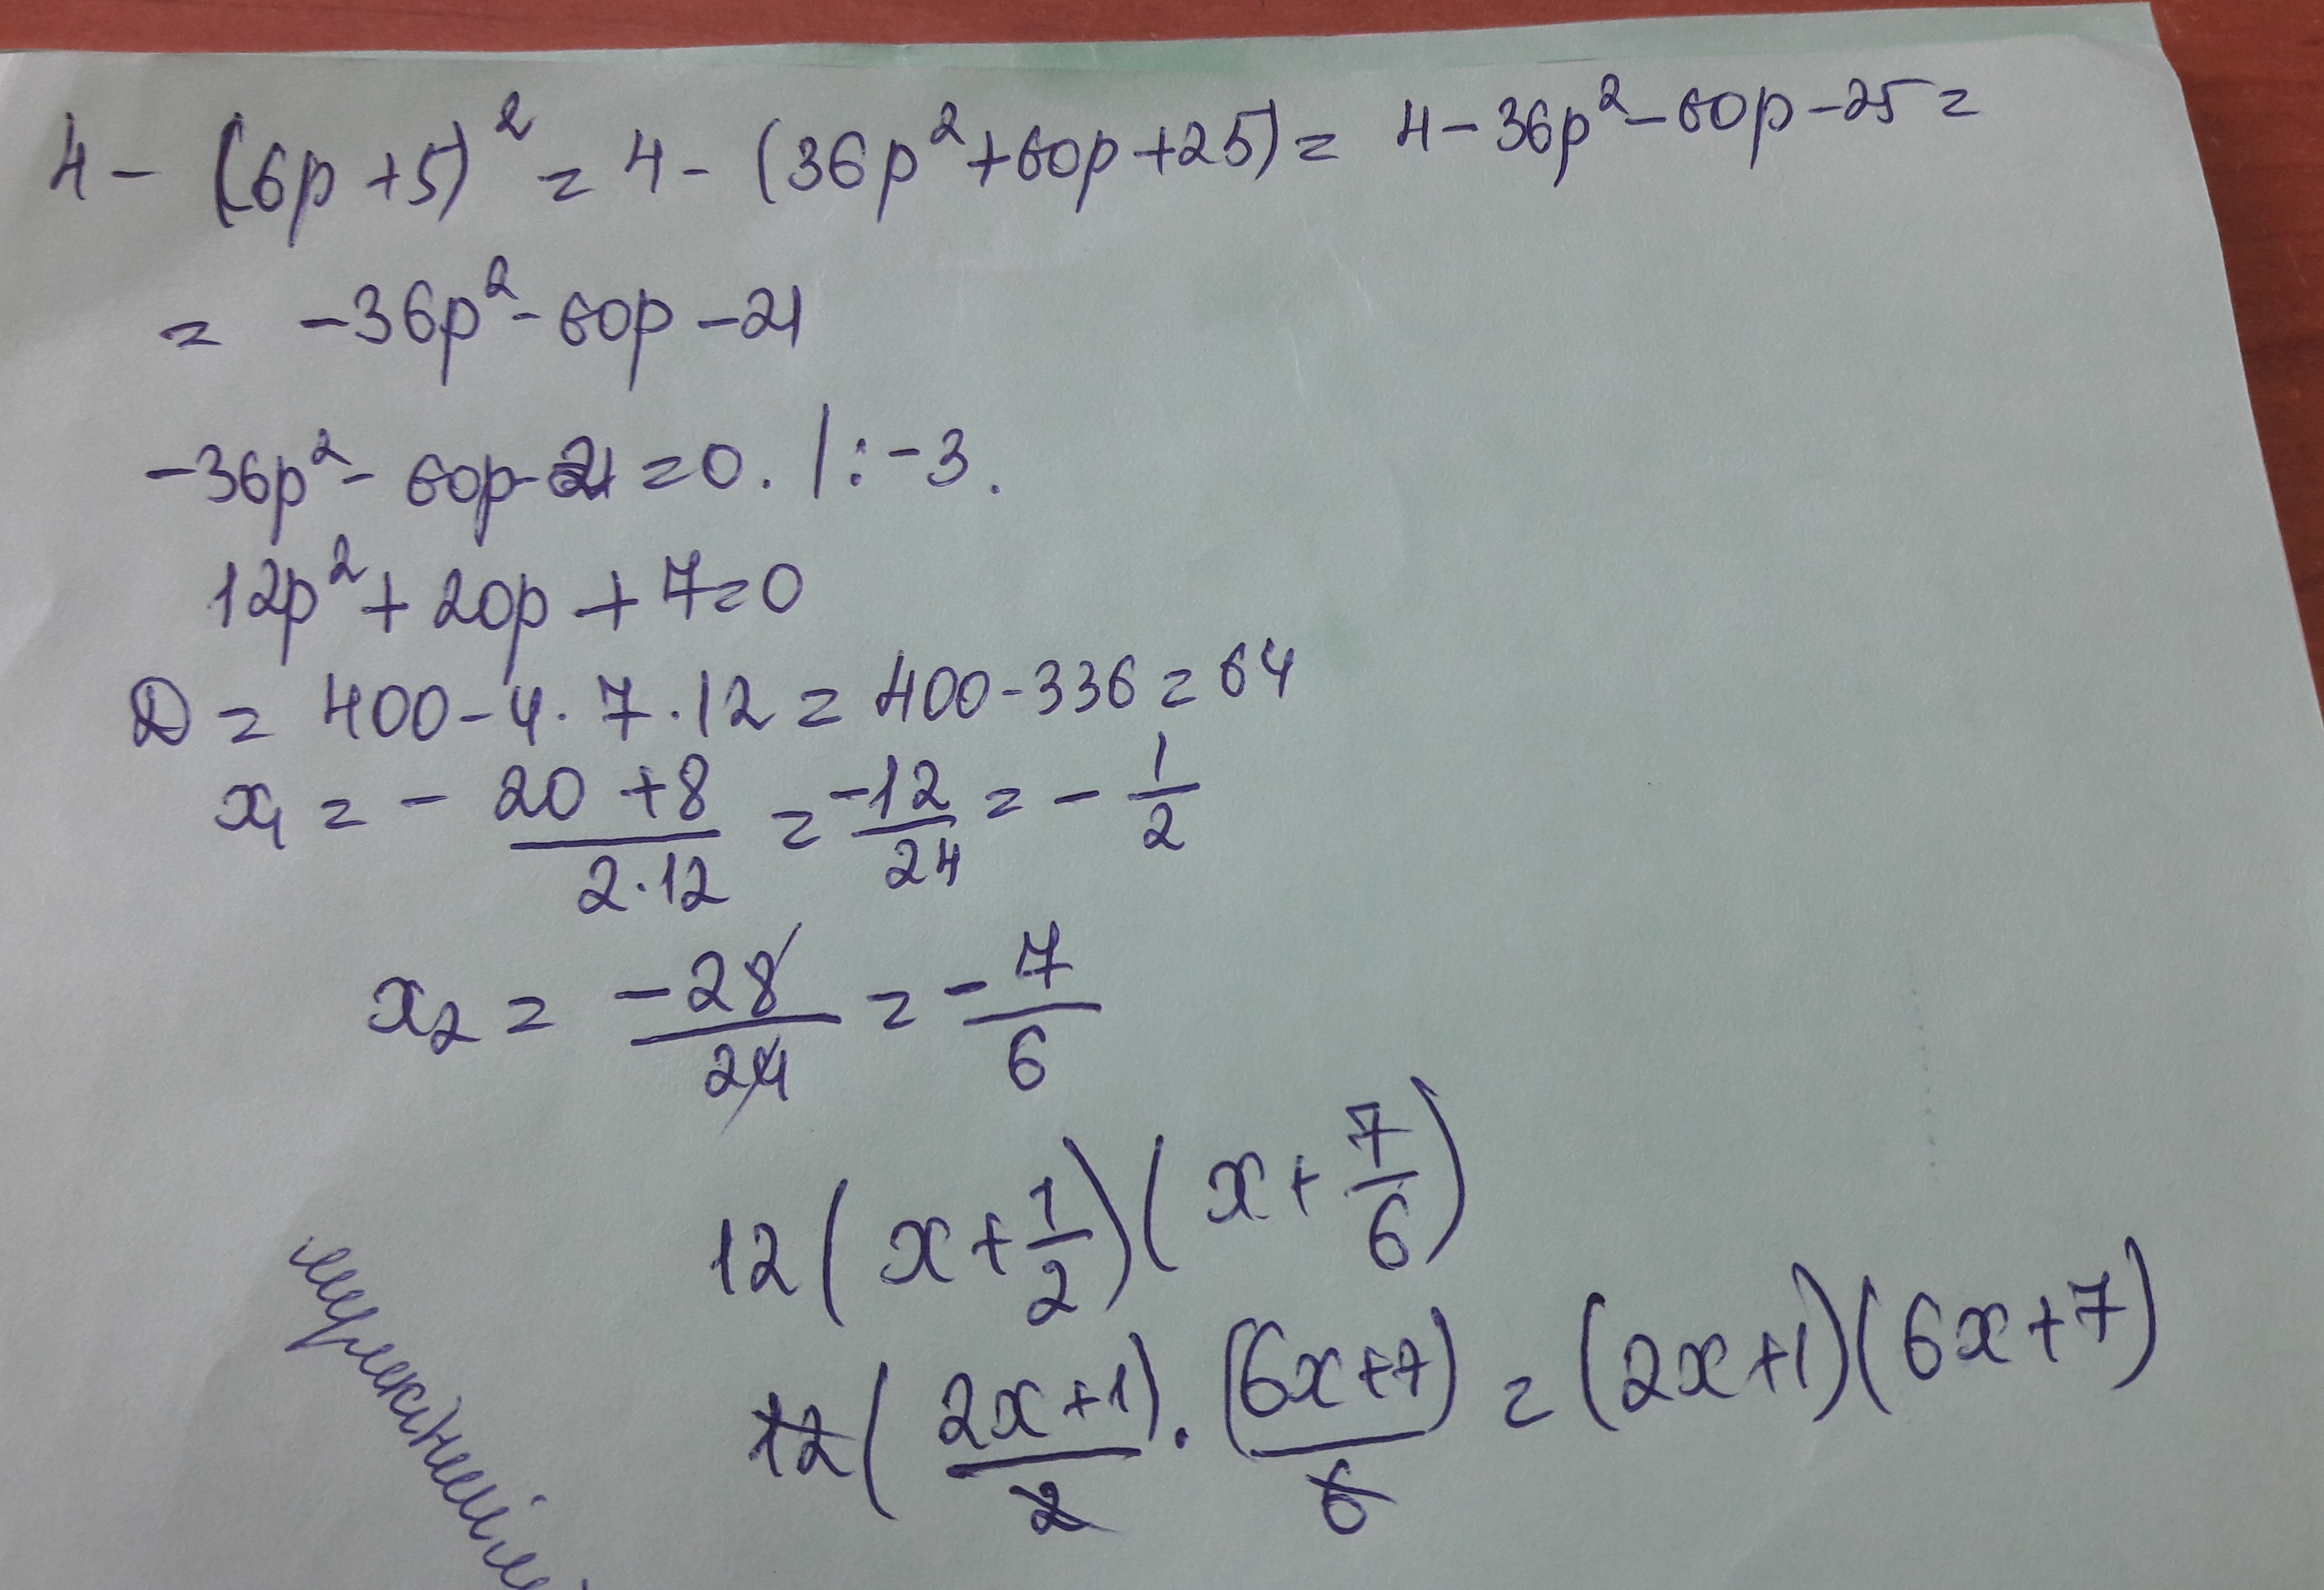 4 - (6p + 5)² = 4 - (36p² + 60p + 25) = 4 - 36p² - 60p - 25 =
= -36p² - 60p - 21
-36p² - 60p - 21 = 0. | : -3.
12p² + 20p + 7 = 0
D = 400 - 4 · 7 · 12 = 400 - 336 = 64
x₁ = - 20 + 8 / 2 · 12 = -12 / 24 = - 1 / 2
x₂ = -28 / 24 = - 7 / 6
12 ( x + 1/2 ) ( x + 7/6 )
12 ( 2x + 1 ) / 2 · ( 6x + 7 ) / 6 = (2x + 1)(6x + 7)